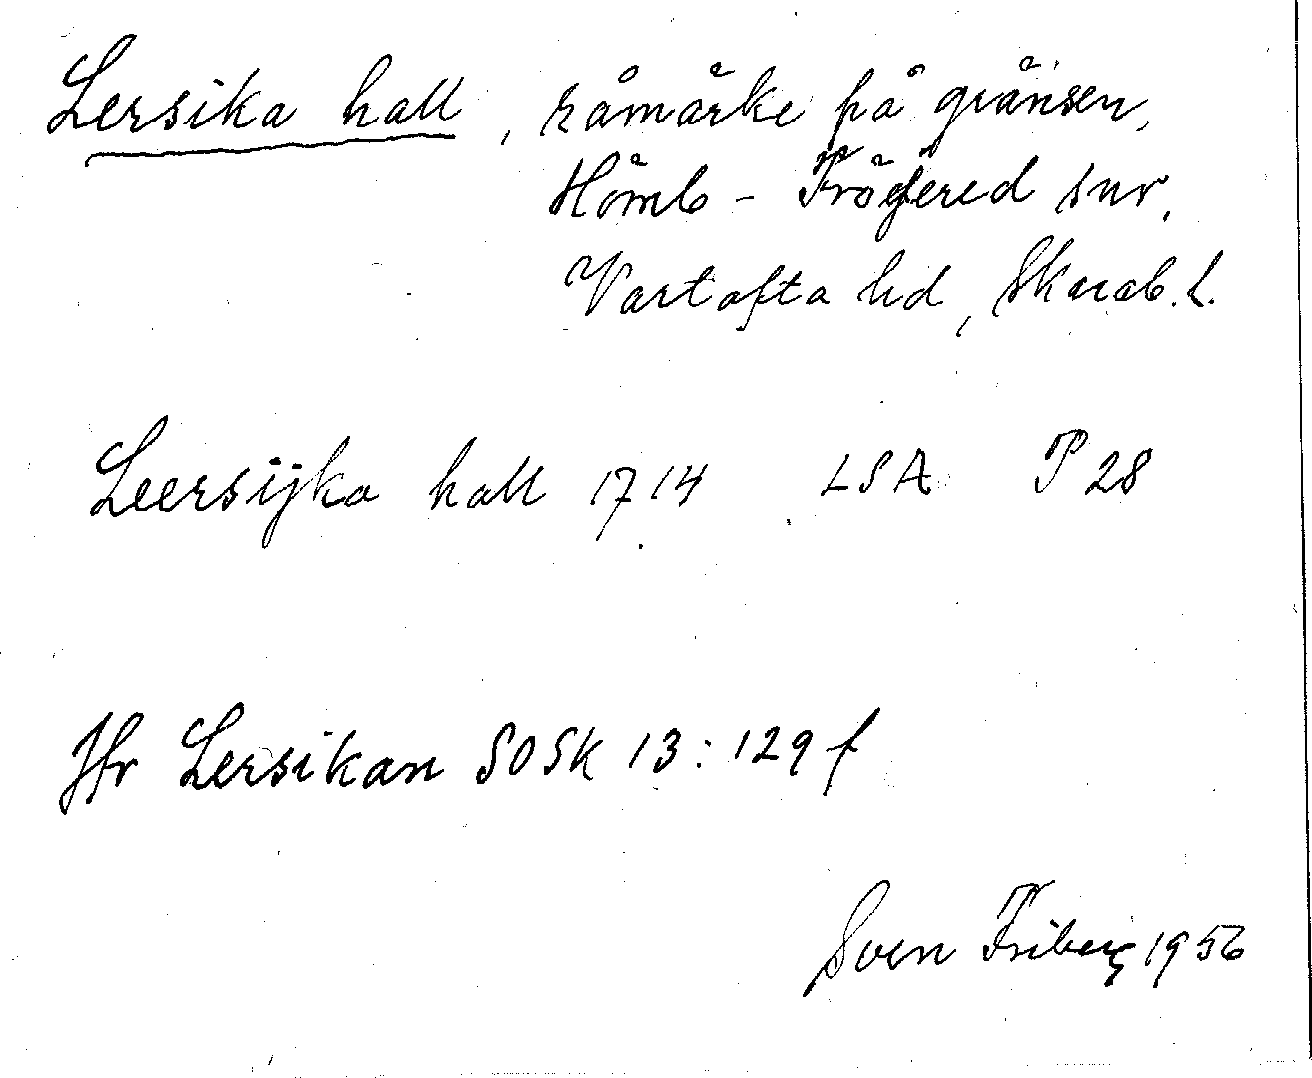 Lersika hall, råmärke på gränsen,
Hömb - Fröjered snr.
Vartofta hd, Skarab. l.
Leersijka hall 1714 LSA P 28
Jfr Lersikan SOSK 13:129 f
Sven Friberg 1956